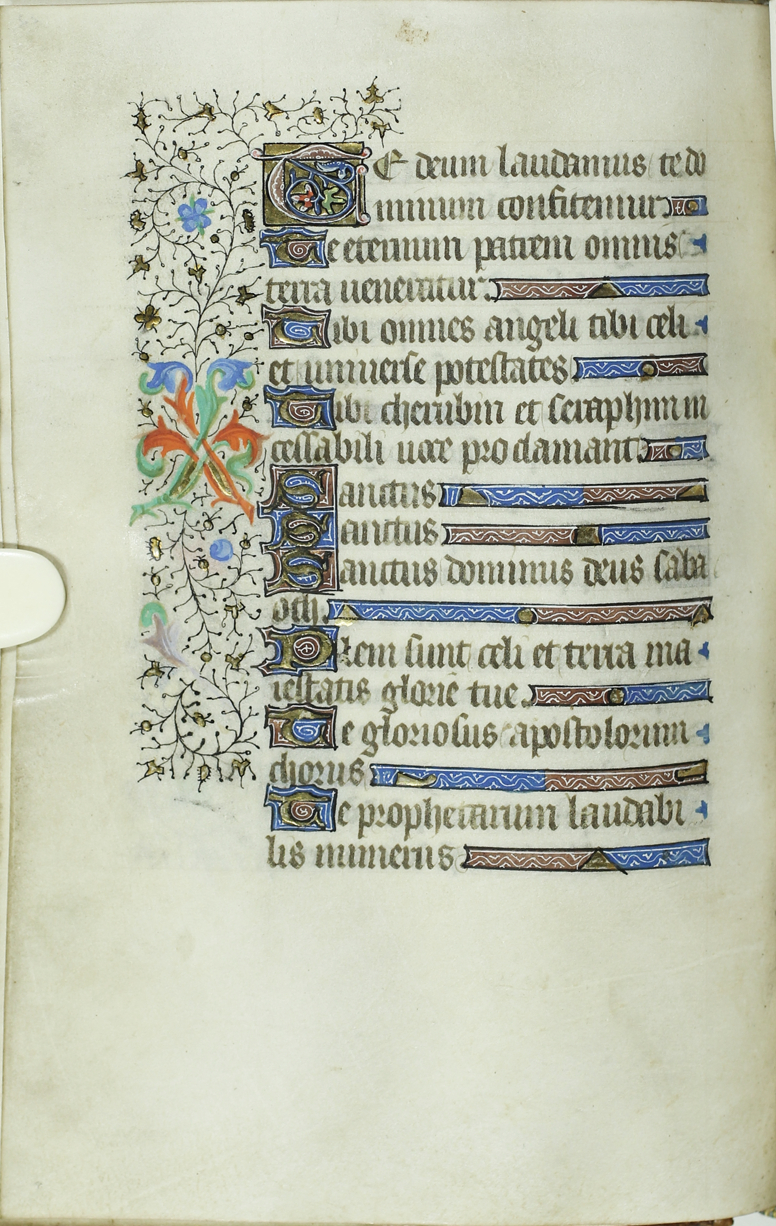 TE deum laudamus te do
minum confitemur
Te eternum patrem omnis
terra ueneratur.
Tibi omnes angeli tibi celi
et uniuerse potestates
Tibi cherubin et seraphim in
cessabili uoce proclamant.
Sanctus
Sanctus
Sanctus dominus deus saba
oth.
Pleni sunt celi et terra ma
iestatis glorie tue.
Te gloriosus apostolorum
chorus
Te prophetarum laudabi
lis numerus